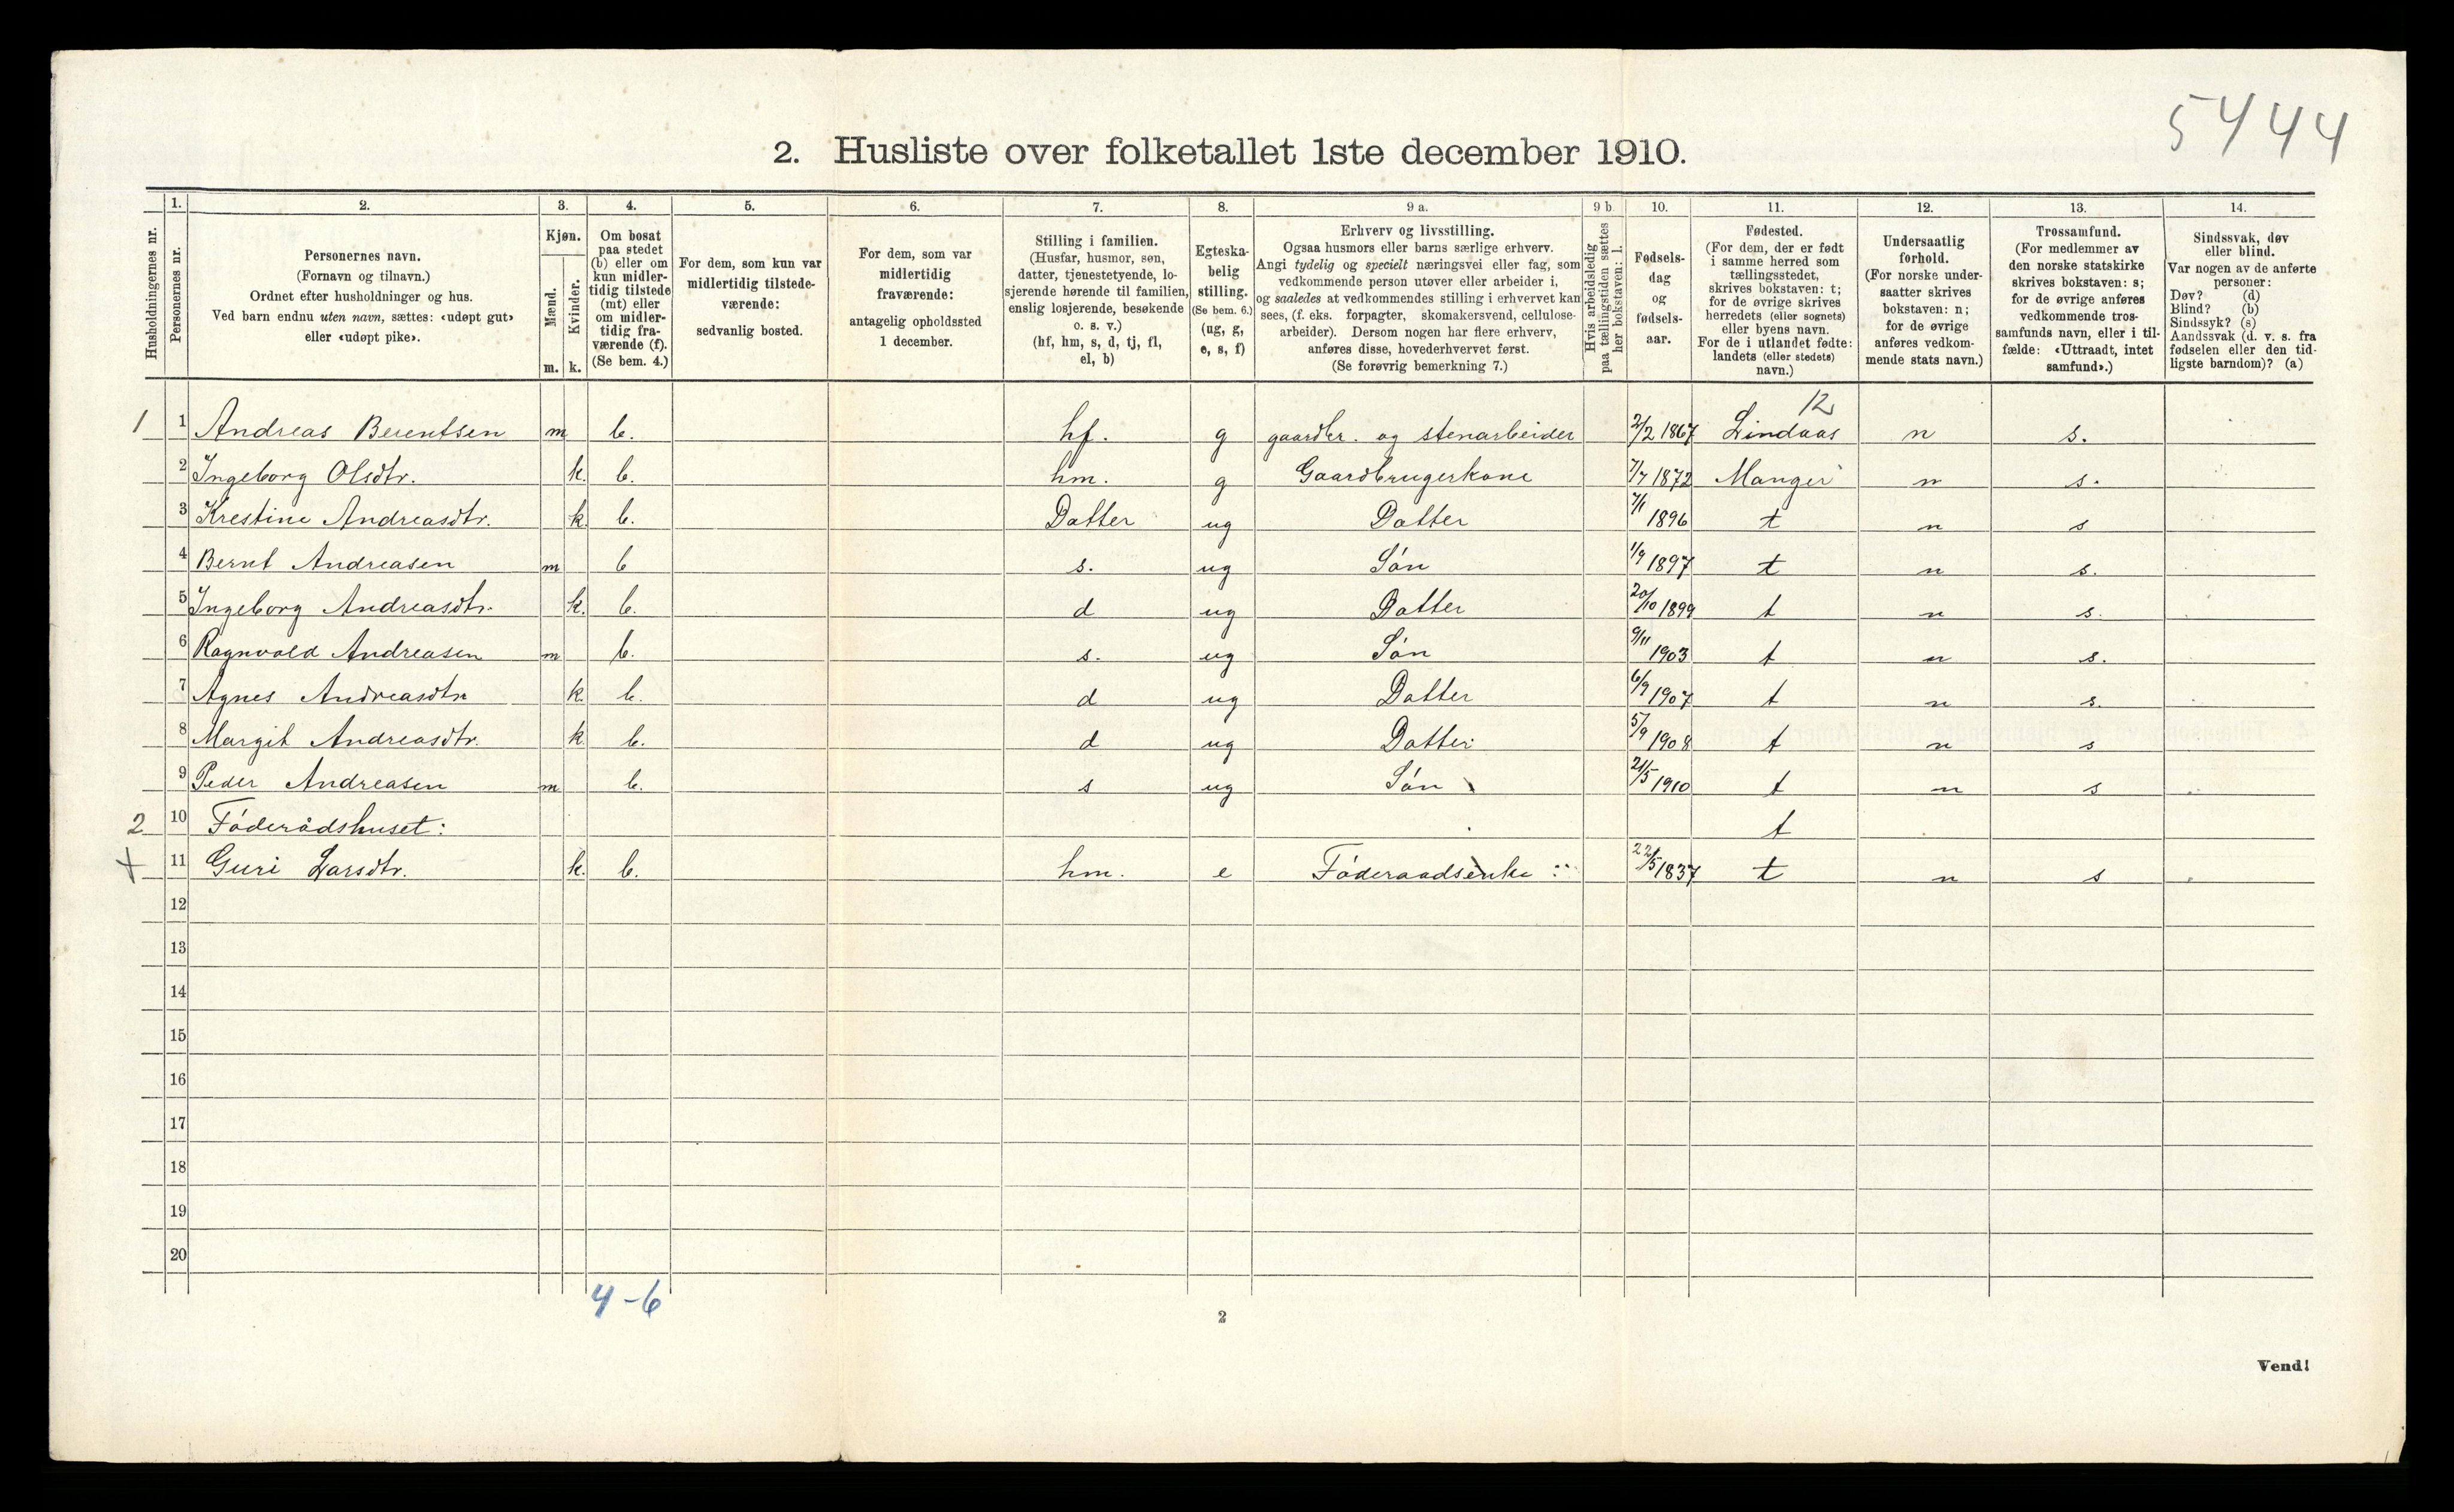 5444
2. Husliste over folketallet 1ste december 1910.
Husholdningernes nr.
1. 2. 3. 4. 5. 6. 7. 8. 9 a. 9 b 10. 11. 12. 13. 14.
Personernes nr.
Personernes navn.
(Fornavn og tilnavn.)
Ordnet efter husholdninger og hus.
Ved barn endnu uten navn, sættes: «udøpt gut»
eller «udøpt pike».
Kjøn.
Mænd.
Kvinder.
m. k.
Om bosat
paa stedet
(b) eller om
kun midler-
tidig tilstede
(mt) eller
om midler-
tidig fra-
værende (f).
(Se bem. 4.)
For dem, som kun var
midlertidig tilstede-
værende:
sedvanlig bosted.
For dem, som var
midlertidig
fraværende:
antagelig opholdssted
1 december.
Stilling i familien.
(Husfar, husmor, søn,
datter, tjenestetyende, lo-
sjerende hørende til familien,
enslig losjerende, besøkende
o. s. v.)
(hf, hm, s, d, tj, fl,
el, b)
Egteska-
belig
stilling.
(Se bem. 6.)
(ug, g,
e, s, f)
Erhverv og livsstilling.
Ogsaa husmors eller barns særlige erhverv.
Angi tydelig og specielt næringsvei eller fag, som
vedkommende person utøver eller arbeider i,
og saaledes at vedkommendes stilling i erhvervet kan
sees, (f. eks. forpagter, skomakersvend, cellulose-
arbeider). Dersom nogen har flere erhverv,
anføres disse, hovederhvervet først.
(Se forøvrig bemerkning 7.)
Hvis arbeidsledig
paa tællingstiden sættes
her bokstaven: l.
Fødsels-
dag
og
fødsels-
aar.
Fødested.
(For dem, der er født
i samme herred som
tællingsstedet,
skrives bokstaven: t;
for de øvrige skrives
herredets (eller sognets)
eller byens navn.
For de i utlandet fødte:
landets (eller stedets)
navn.)
Undersaatlig
forhold.
(For norske under-
saatter skrives
bokstaven: n;
for de øvrige
anføres vedkom-
mende stats navn.)
Trossamfund.
(For medlemmer av
den norske statskirke
skrives bokstaven: s;
for de øvrige anføres
vedkommende tros-
samfunds navn, eller i til-
fælde: «Uttraadt, intet
samfund».)
Sindssvak, døv
eller blind.
Var nogen av de anførte
personer:
Døv? (d)
Blind? (b)
Sindssyk? (s)
Aandssvak (d. v. s. fra
fødselen eller den tid-
ligste barndom)? (a)
12
1 1 Andreas Berentsen m b. hf. g gaardbr. og stenarbeider 2/2 1867 Lindaas n s.
2 Ingeborg Olsdtr. k. b. hm. g Gaardbrugerkone 7/7 1872 Manger n s.
3 Krestine Andreasdtr. k. b. Datter ug Datter 7/1 1896 t n s
4 Bernt Andreasen m b s. ug Søn 1/9 1897 t n s.
5 Ingeborg Andreasdtr. k. b. d ug Datter 20/10 1899 t n s.
6 Ragnvald Andreasen m b. s. ug Søn 9/11 1903 t n s.
7 Agnes Andreasdtr k. b. d ug Datter 6/9 1907 t n s.
8 Margit Andreasdtr. k. b. d ug Datter 5/9 1908 t n s
9 Peder Andreasen m b. s ug Søn 21/5 1910 t n s
2 10 Føderådshuset: t
+ 11 Guri Larsdtr. k. b. hm. e Føderaadsenke 22/5 1837 t n s
12
13
14
15
16
17
18
19
20
4-6
2
Vend!